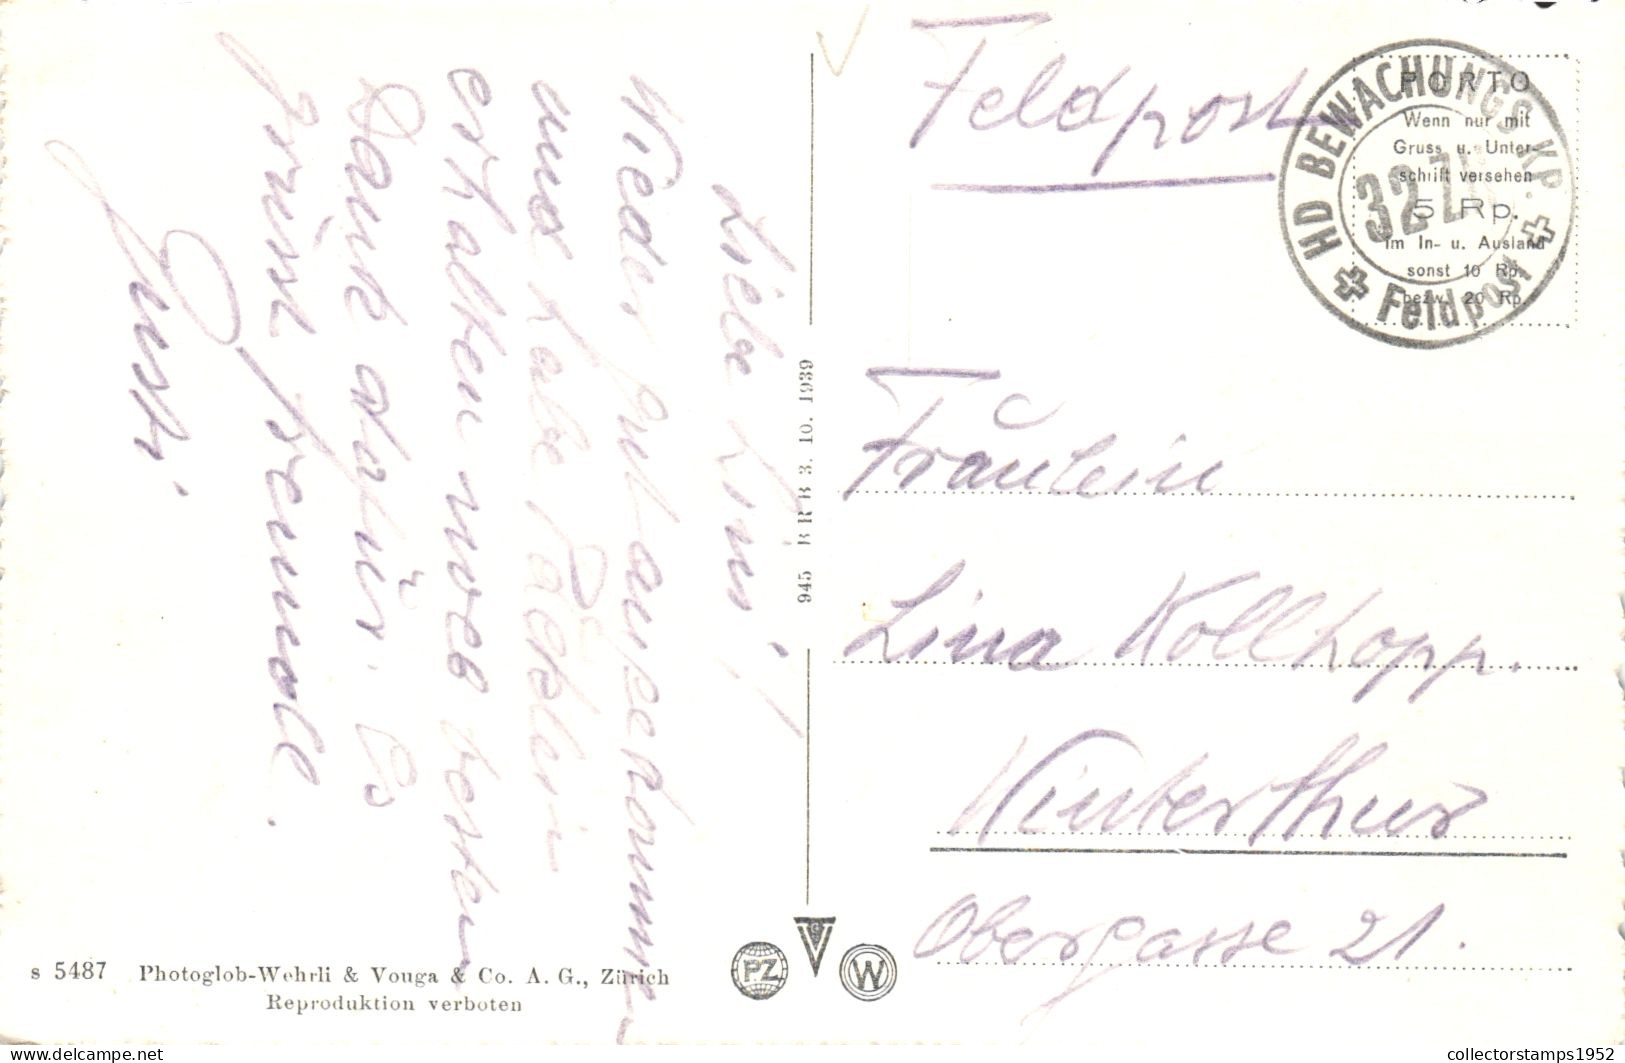 Feldpost
HD BEWACHUNGS KP.
32
Feldpost
PORTO
Wenn nur mit
Gruss u. Unter-
schrift versehen
5 Rp.
im In- u. Ausland
sonst 10 Rp.
bezw. 20 Rp.
Liebe Lini!
Wieder gut angekommen
und habe Päcklein
erhalten besten
Dank dafür. Es
grüsst freundl.
Gusti
945 BRB 3. 10. 1939
Fräulein
Lina Kollhopp.
Winterthur
Obergasse 21.
s 5487 Photoglob-Wehrli & Vouga & Co. A. G., Zürich
Reproduktion verboten
PZ
V
G
W
collectorstamps1952